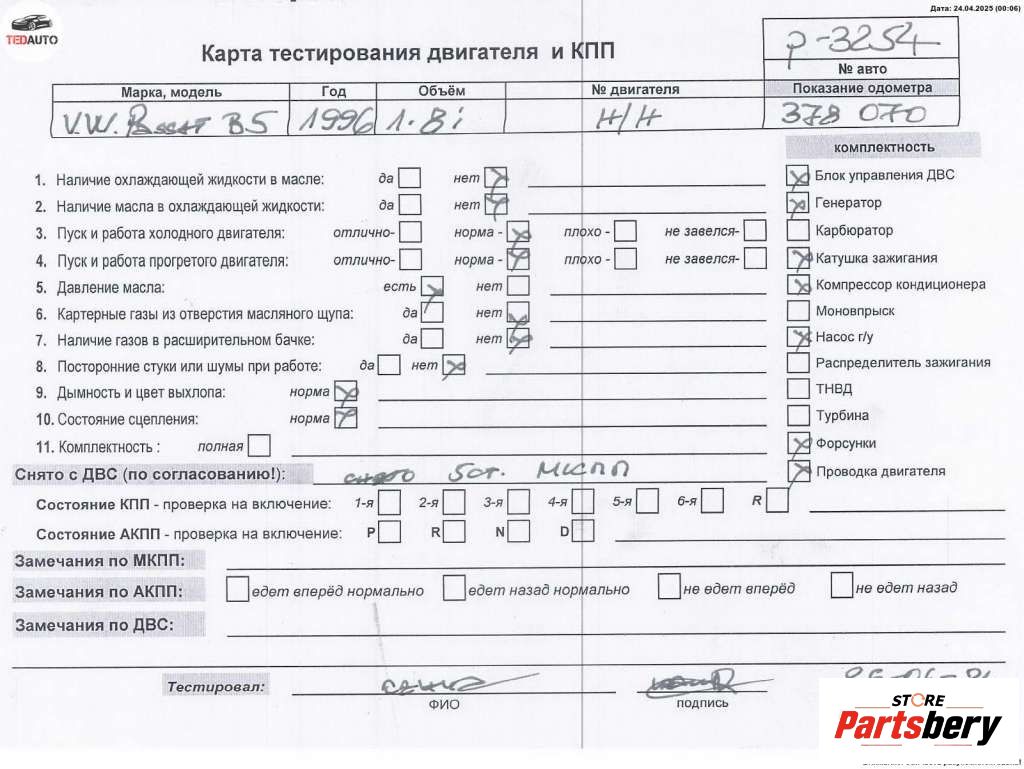 Дата: 24.04.2025 (00:06)
TEDAUTO
Карта тестирования двигателя и КПП
р-3254
№ авто
Марка, модель Год Объём № двигателя Показание одометра
V.W. Passat B5 1996 1.8i Н/Н 378 070
комплектность
1. Наличие охлаждающей жидкости в масле: да нет
Блок управления ДВС
2. Наличие масла в охлаждающей жидкости: да нет
Генератор
3. Пуск и работа холодного двигателя: отлично- норма - плохо - не завелся-
Карбюратор
4. Пуск и работа прогретого двигателя: отлично- норма - плохо - не завелся-
Катушка зажигания
5. Давление масла: есть нет
Компрессор кондиционера
6. Картерные газы из отверстия масляного щупа: да нет
Моновпрыск
7. Наличие газов в расширительном бачке: да нет
Насос г/у
8. Посторонние стуки или шумы при работе: да нет
Распределитель зажигания
9. Дымность и цвет выхлопа: норма
ТНВД
10. Состояние сцепления: норма
Турбина
11. Комплектность : полная
Форсунки
Снято с ДВС (по согласованию!): снято 5ст. МКПП
Проводка двигателя
Состояние КПП - проверка на включение: 1-я 2-я 3-я 4-я 5-я 6-я R
Состояние АКПП - проверка на включение: P R N D
Замечания по МКПП:
Замечания по АКПП: едет вперёд нормально едет назад нормально не едет вперёд не едет назад
Замечания по ДВС:
Тестировал:
ФИО подпись
STORE
Partsbery